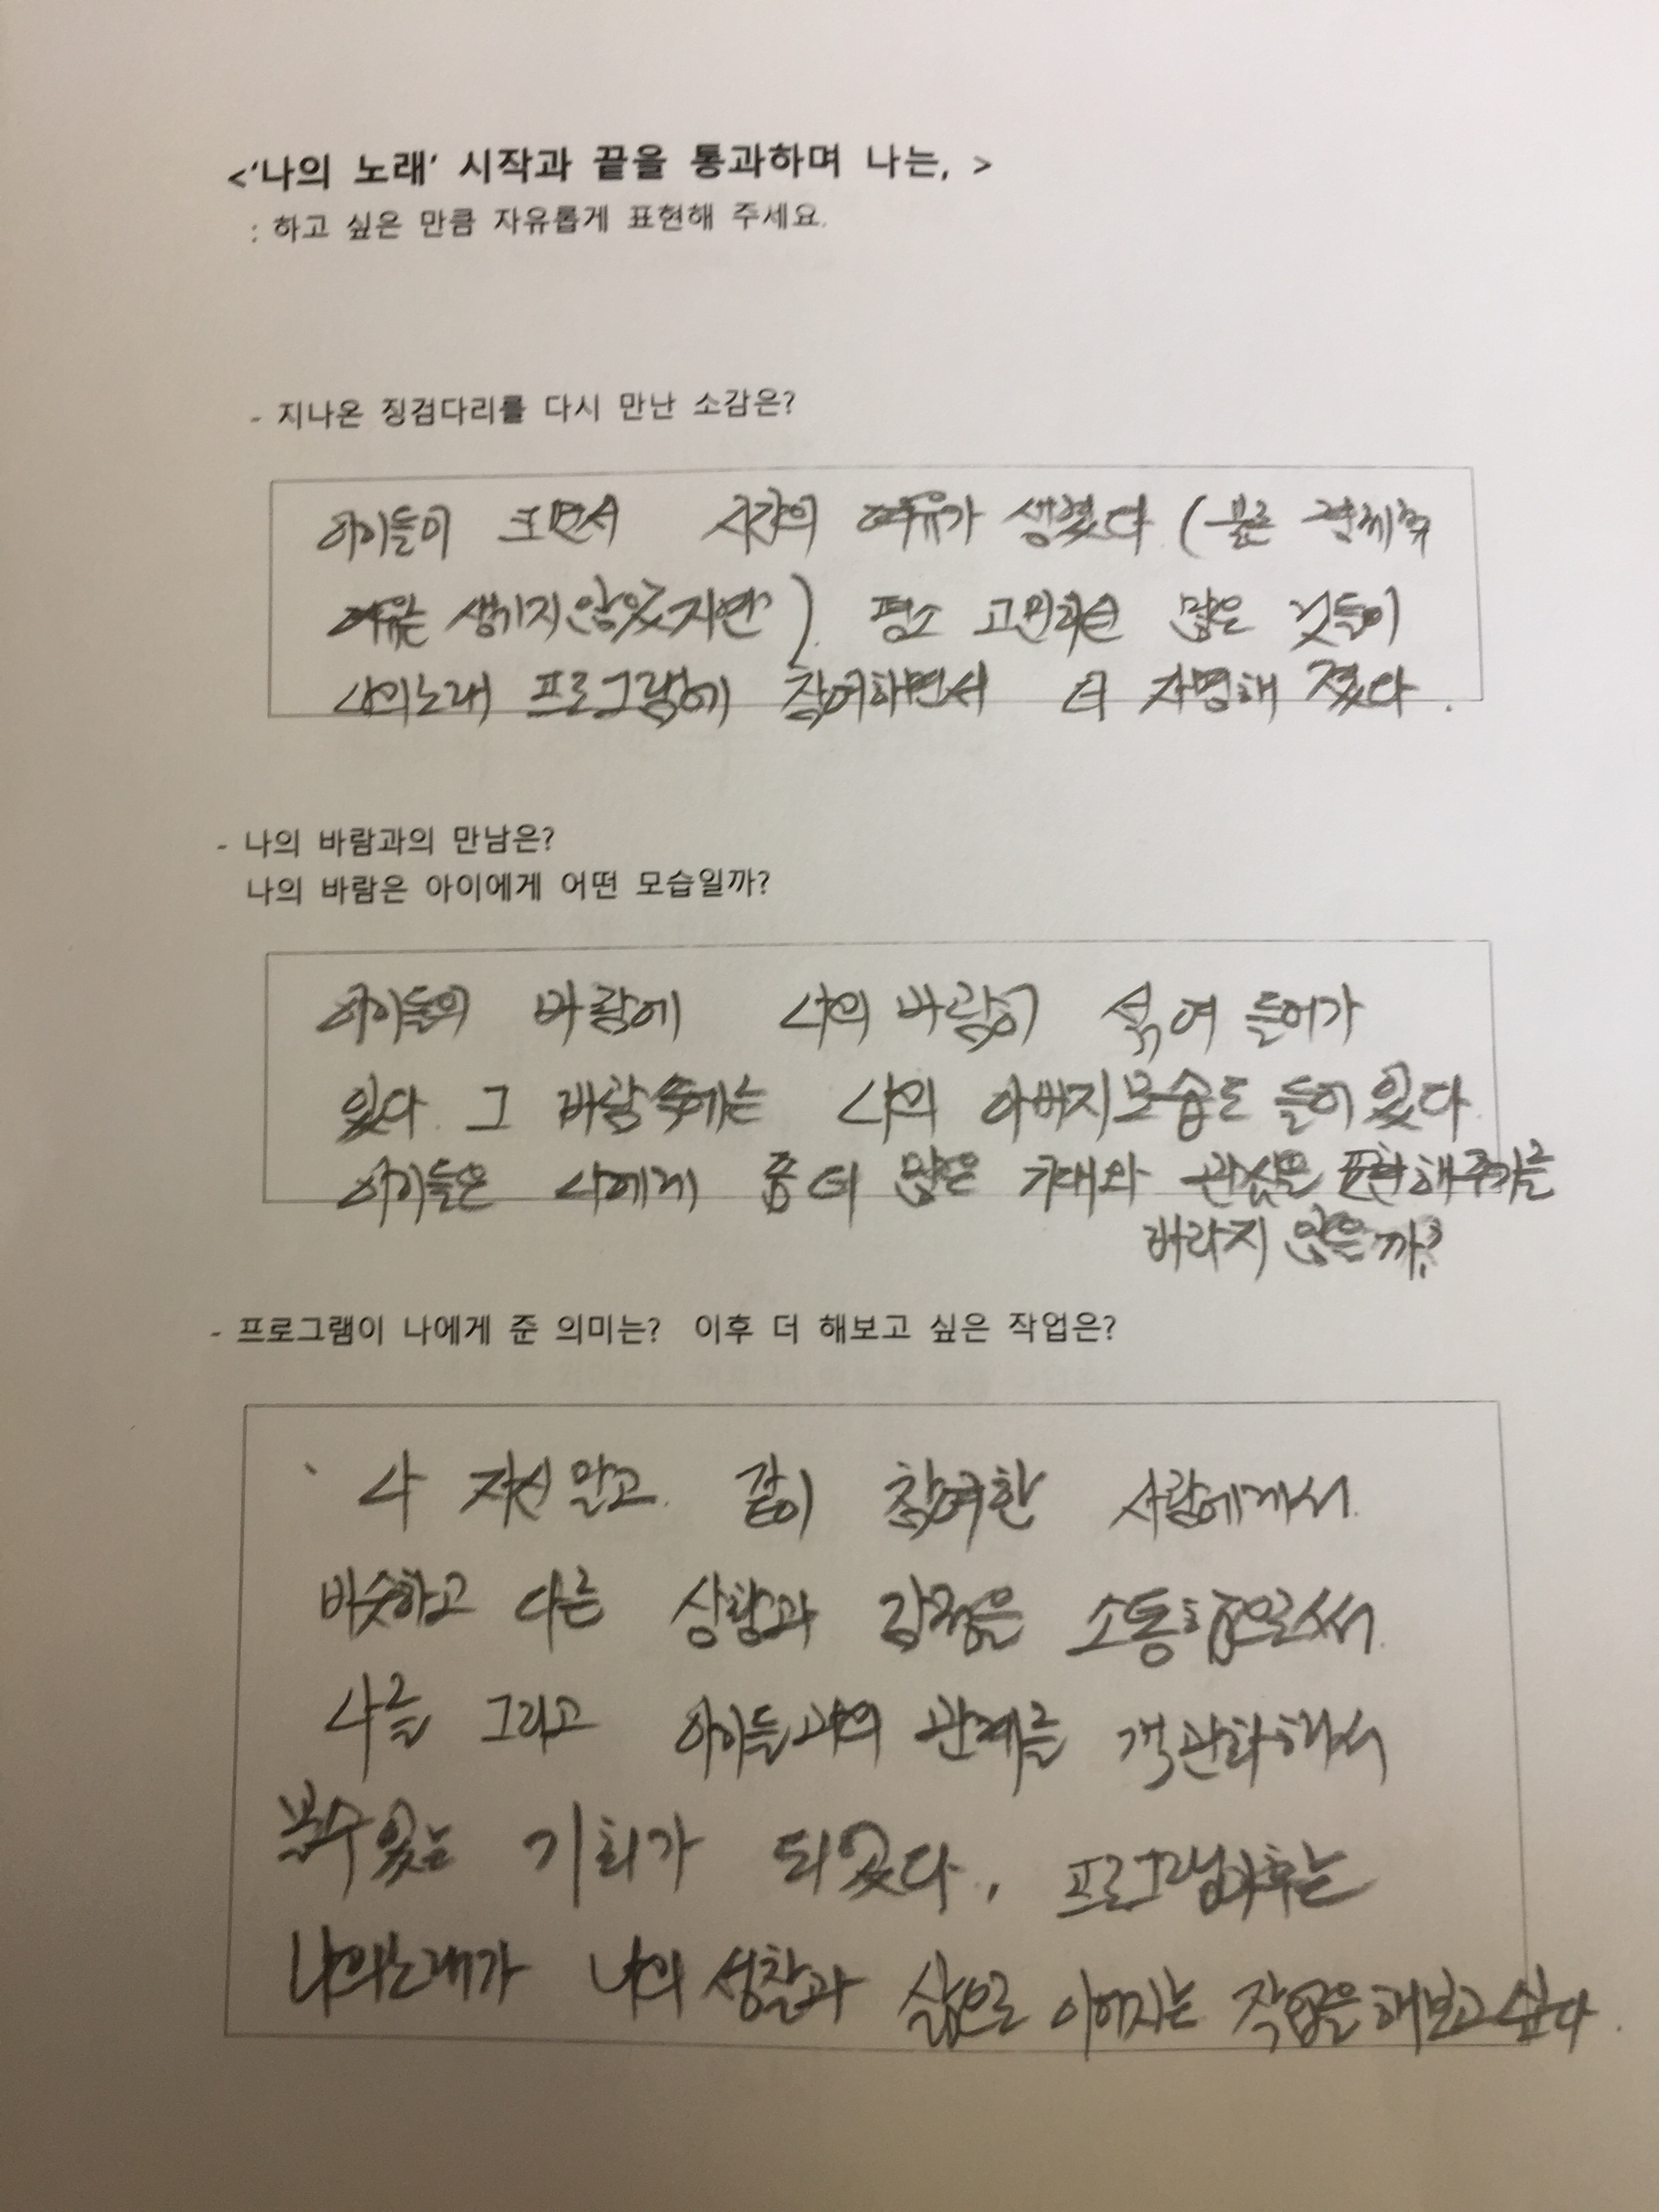 <'나의 노래' 시작과 끝을 통과하며 나는, >
: 하고 싶은 만큼 자유롭게 표현해 주세요.
- 지나온 징검다리를 다시 만난 소감은?
아이들이 크면서 시간의 여유가 생겼다 (물론 경제적
여유는 생기지 않았지만). 평소 고민하던 많은 것들이
나의노래 프로그램에 참여하면서 더 자명해 졌다.
- 나의 바람과의 만남은?
나의 바람은 아이에게 어떤 모습일까?
아이들의 바람에 나의 바람이 섞여 들어가
있다. 그 바람 속에는 나의 아버지 모습도 들어 있다.
아이들은 나에게 좀 더 많은 기대와 관심을 표현해주기를
바라지 않을까?
- 프로그램이 나에게 준 의미는? 이후 더 해보고 싶은 작업은?
나 자신 말고. 같이 참여한 사람에게서.
비슷하고 다른 상황과 감정을 소통함으로써.
나를 그리고 아이들과의 관계를 객관화해서
볼수 있는 기회가 되었다. 프로그램이후는
나의노래가 나의 성찰과 삶으로 이어지는 작업을 해보고 싶다.